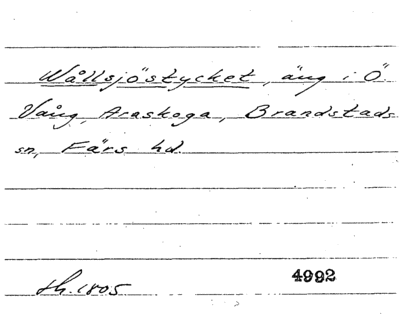 Wållsjöstycket, äng i Ö.
Vång, Araskoga, Brandstads
sn, Färs hd.
sh. 1805 4992